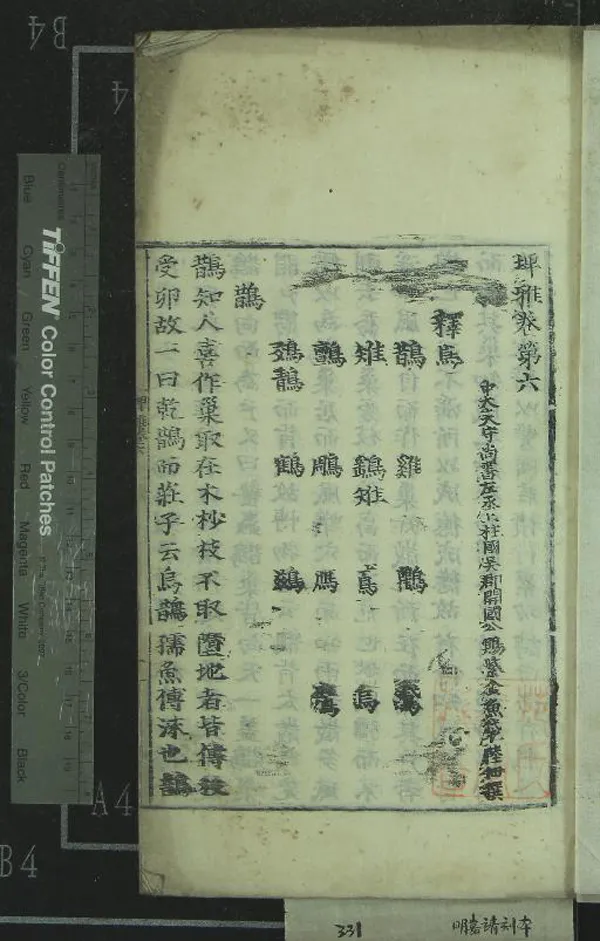 埤雅卷第六
中大夫守尚書左丞上柱國吳郡開國公賜紫金魚袋陸佃撰
釋鳥
鵲 雞
雉 雉 鳶 烏
鵰
鶴
鵲
鵲知人喜作巢取在木杪枝不取墮地者皆傳枝
受卵故一曰乾鵲而莊子云烏鵲孺魚傅沫也鵲
TIFFEN Color Control Patches
Blue Cyan Green Yellow Red Magenta White 3/Color Black
B4
A4
B4
331
明嘉靖刻本